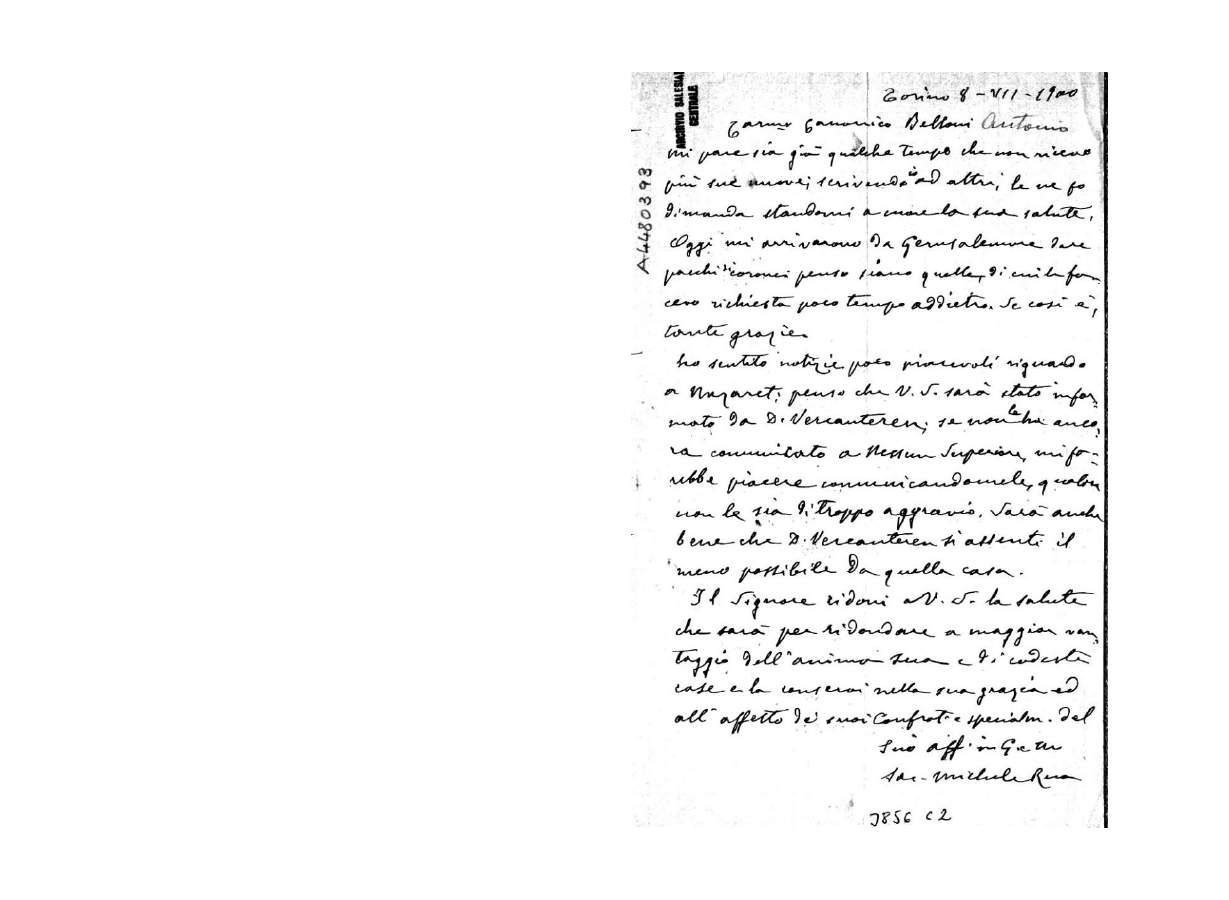 ARCHIVIO SALESIANO
CENTRALE
A4480393
Torino 8-VII-1900
Carmo Canonico Belloni Antonio
mi pare sia già qualche tempo che non ricevo
più sue nuove; scrivendo io ad altri, le ne fo
dimanda standomi a cuore la sua salute.
Oggi mi arrivarono da Gerusalemme due
pacchi di corone; penso siano quelle, di cui le fa-
cevo richiesta poco tempo addietro. Se così è,
tante grazie.
ho sentito notizie poco piacevoli riguardo
a Nazaret; penso che V. S. sarà stato infor-
mato da D. Vercauteren; se non le ha anco-
ra comunicato a nessun Superiore, mi fa-
rebbe piacere comunicandomele, qualora
non le sia di troppo aggravio. Sarà anche
bene che D. Vercauteren si assenti il
meno possibile da quella casa.
Il Signore ridoni a V. S. la salute
che sarà per ridondare a maggior van-
taggio dell'anima sua e di codeste
case e la conservi nella sua grazia ed
all'affetto de' suoi Confrat. e specialm. del
Suo aff. in G. e M.
Sac. Michele Rua
3856 C2